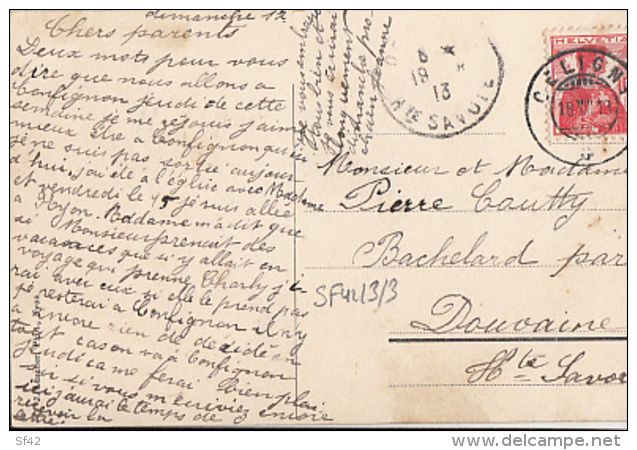 dimanche 12
Chers parents
Deux mots pour vous
dire que nous allons a
Confignon jeudi de cette
semaine je me rejouis j'aime
mieux être a Confignon qu'ici
je ne suis pas sortie aujour
d'hui, j'ai été à l'église avec Madame
et vendredi le 15 je suis allée
a Nyon. Madame m'a dit que
si Monsieur prenait des
vacances que si y allait en
voyage qui prenne Charly j'i
rai avec eux si elle le prend pas
je resterai a Confignon il n'y
a encore rien de décidé en
tout cas on va à Confignon
jeudi ca me ferai bien plai
si si vous m'ecriviez
j'aurai le temps de encore
recevoir la
lettre.
je vous embrasse
tous bien et
a vous
longuement
chérie Jeanne
6
19
13
Hte SAVOIE
HELVETIA
CÉLIGNY
Monsieur et Madame
Pierre Cautty
Bachelard par
Douvaine
Hte Savoie
SF42/3/3
Sf42
delcampe.net